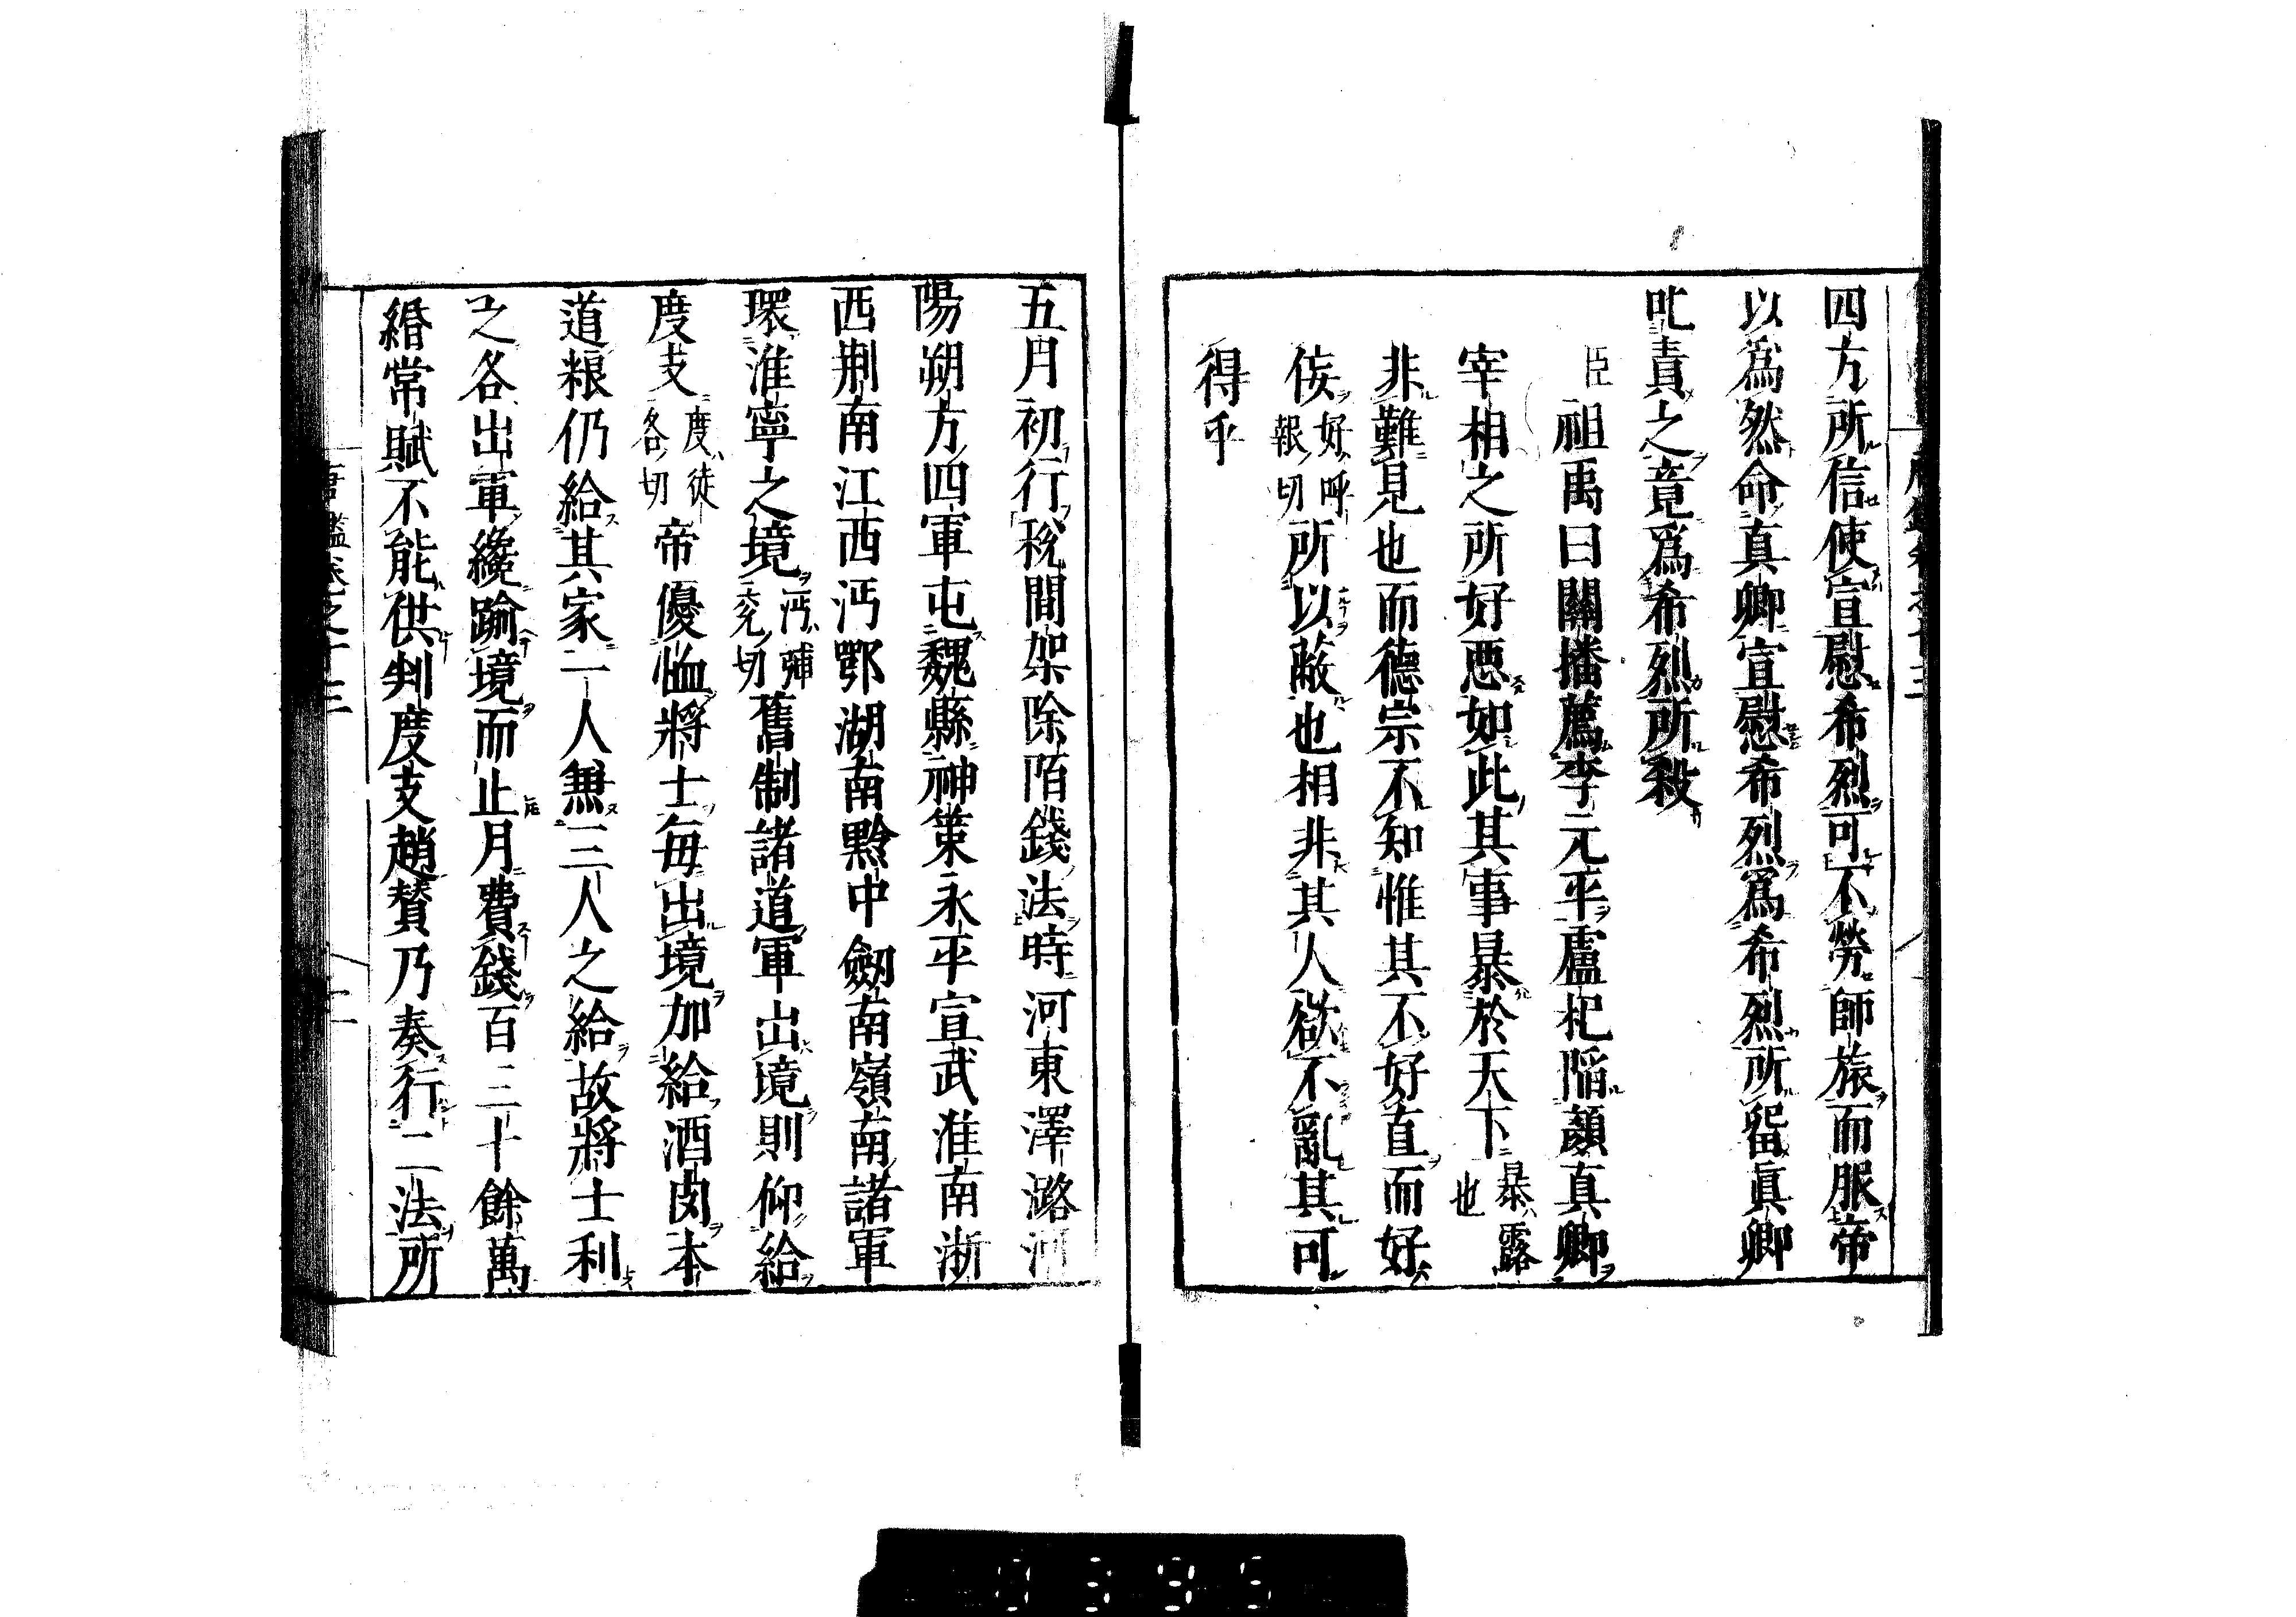 四方所信使宣慰希烈可不勞師旅而服帝
以爲然命真卿宣慰希烈爲希烈所留眞卿
叱責之竟爲希烈所殺
臣祖禹曰關播薦李元平盧杞陷顏真卿
宰相之所好惡如此其事暴於天下暴露也
非難見也而德宗不知惟其不好直而好
佞好呼報切所以蔽也相非其人欲不亂其可
得乎
五月初行稅間架除陌錢法時河東澤潞河
陽朔方四軍屯魏縣神策永平宣武淮南浙
西荆南江西沔鄂湖南黔中劒南嶺南諸軍
環淮寧之境沔彌兖切舊制諸道軍出境則仰給
度支度徒各切帝優恤將士每出境加給酒肉本
道粮仍給其家一人兼三人之給故將士利
之各出軍纔踰境而止月費錢百三十餘萬
緡常賦不能供判度支趙賛乃奏行二法所
唐鑑卷之十三